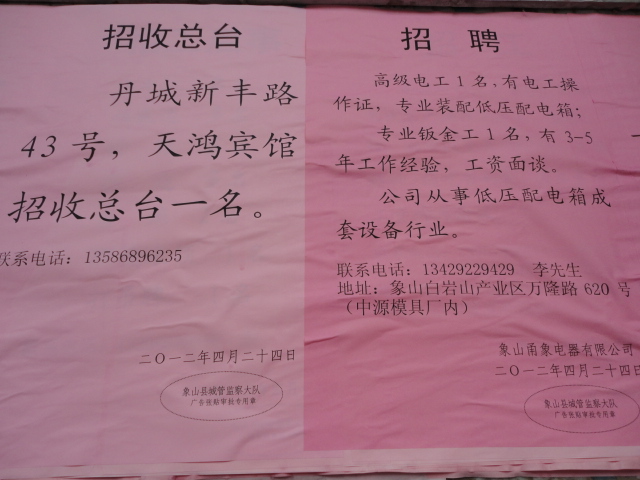 招收总台
丹城新丰路
43号，天鸿宾馆
招收总台一名。
联系电话：13586896235
二〇一二年四月二十四日
象山县城管监察大队
广告张贴审批专用章
招 聘
高级电工1名，有电工操
作证，专业装配低压配电箱；
专业钣金工1名，有3-5
年工作经验，工资面谈。
公司从事低压配电箱成
套设备行业。
联系电话：13429229429 李先生
地址：象山白岩山产业区万隆路620号
（中源模具厂内）
象山甬象电器有限公司
二〇一二年四月二十四日
象山县城管监察大队
广告张贴审批专用章